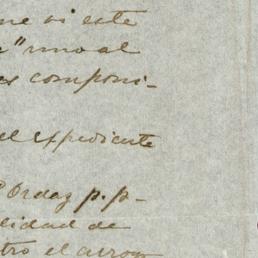 ne si este
" uno al
es componi-
el expediente
Ordaz p. p-
lidad de
tro el arroyo